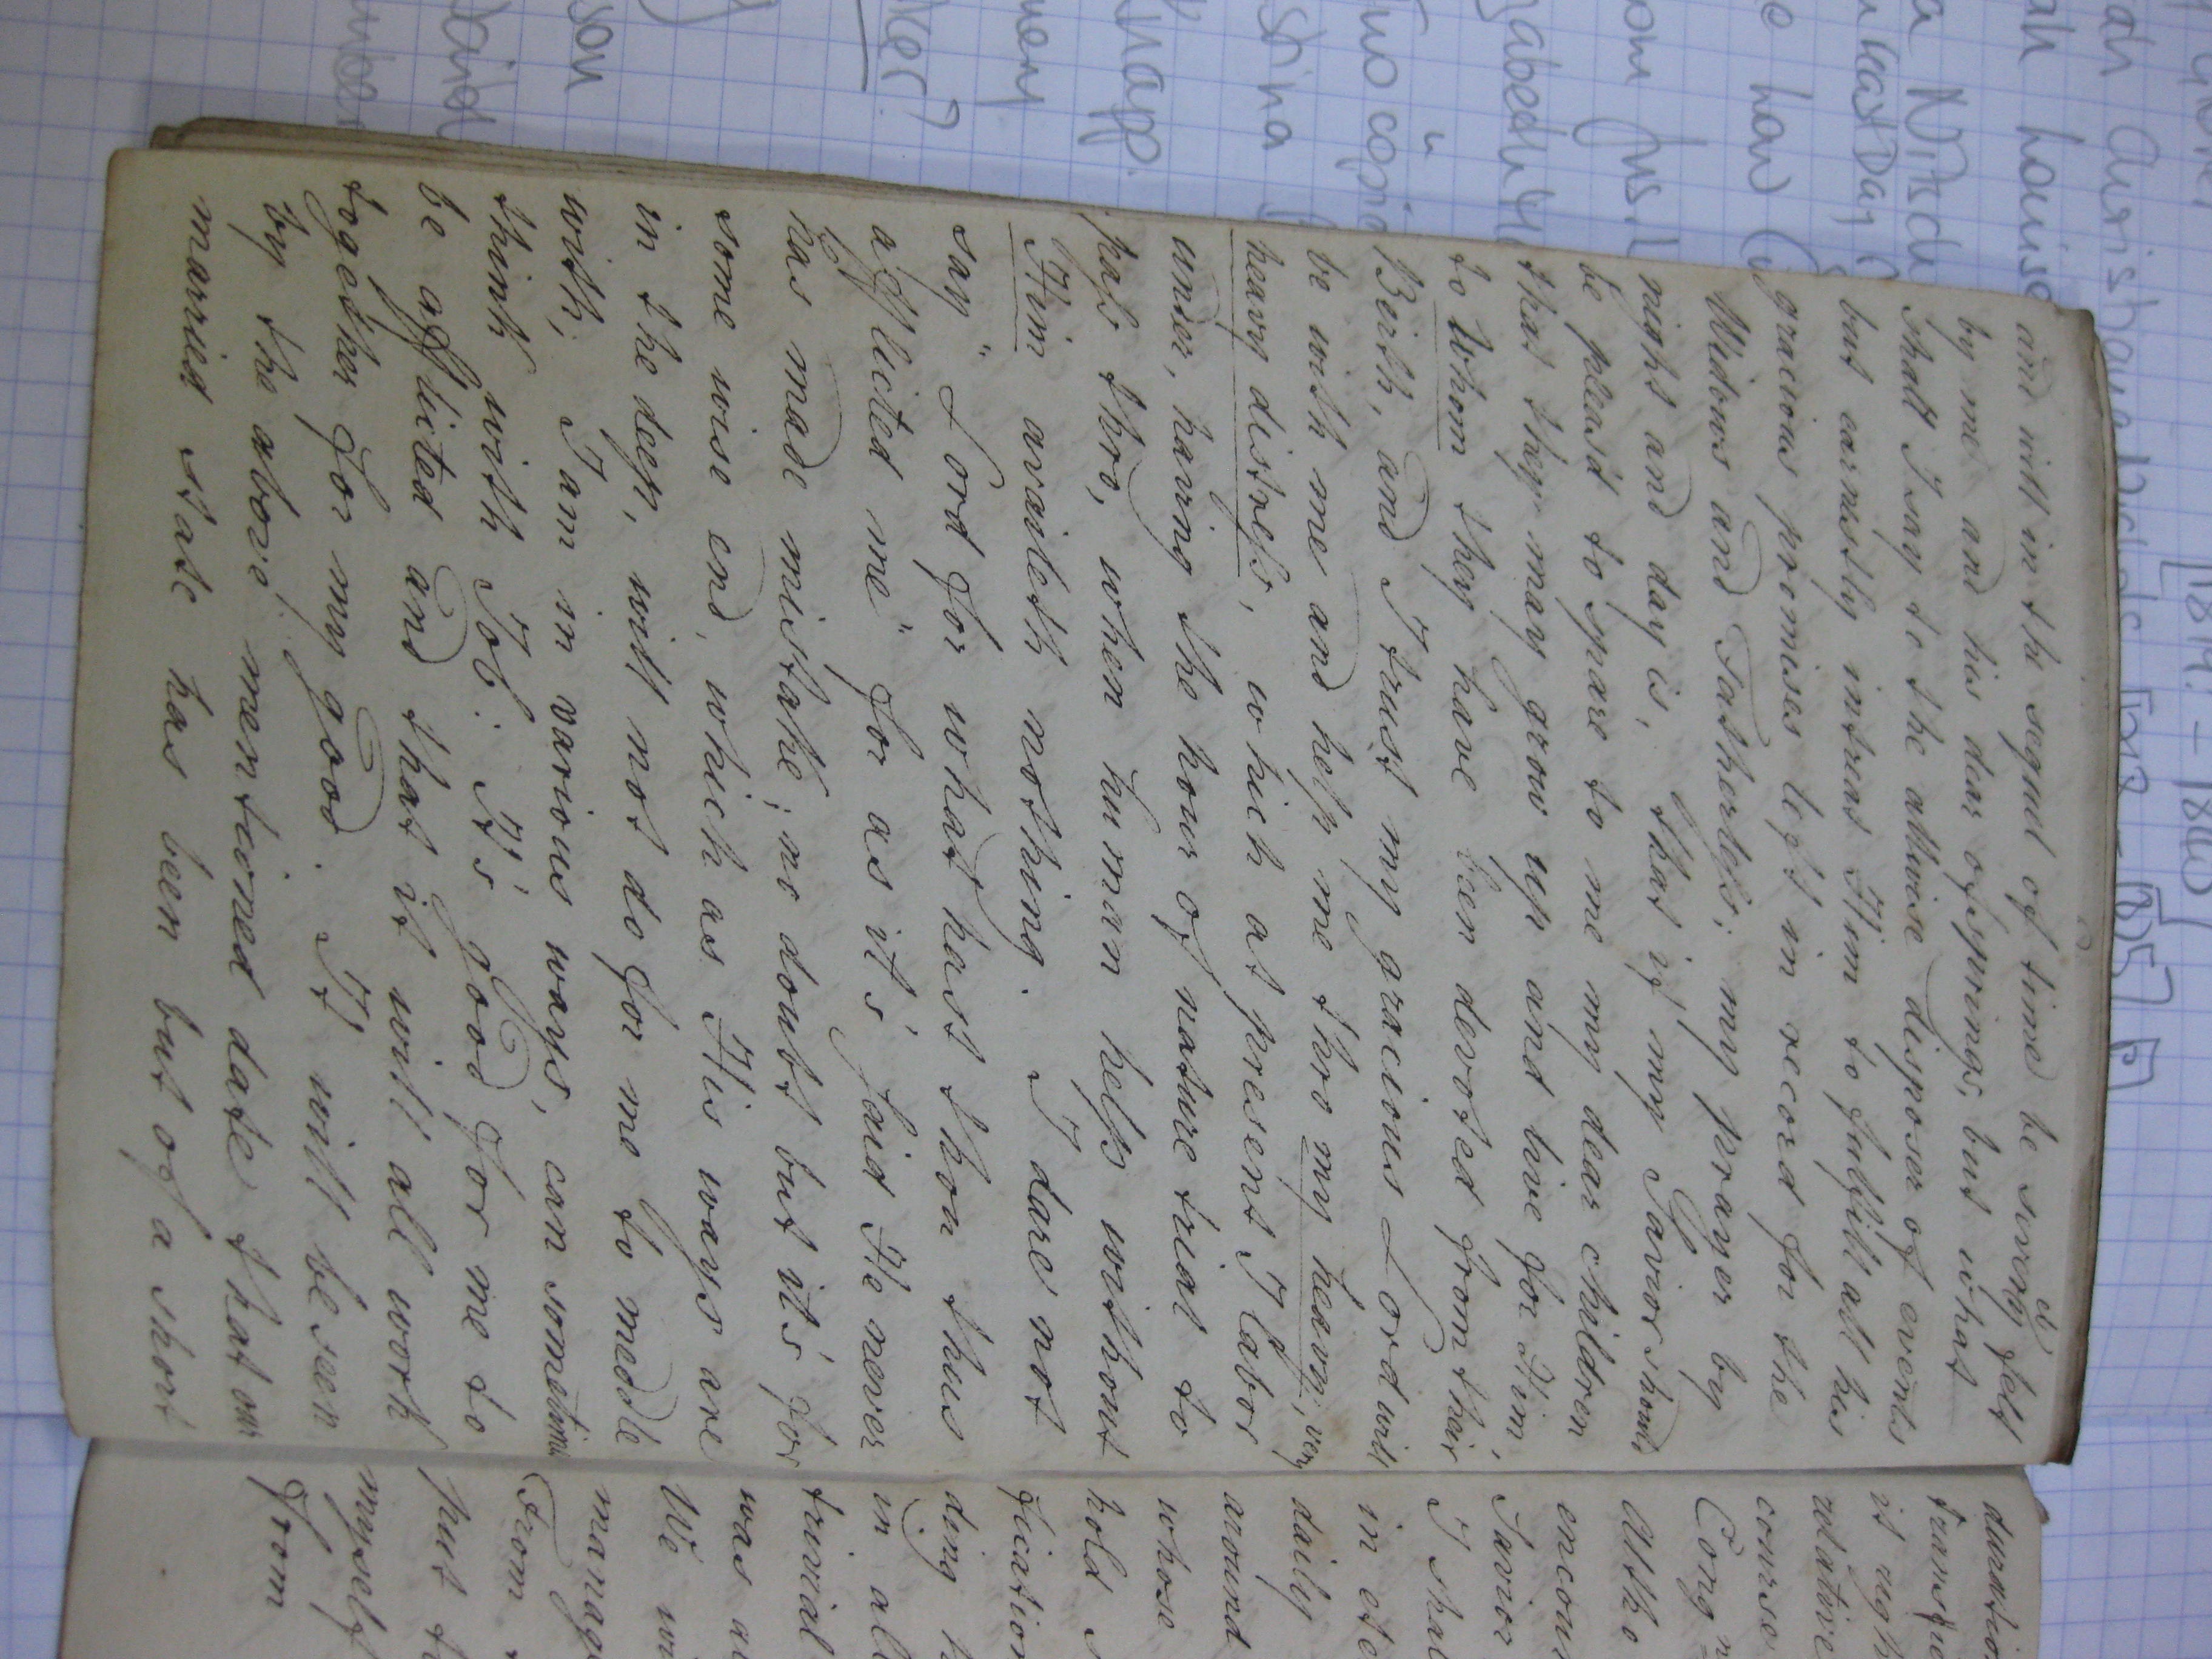 [1819. – 1840]
ah Christiana [– 1825] [P]
ah Louise
a Nitsch
East Day
e how
om
zabeth
Two copi
stina
Knapp.
ker?
son
and will in the sequel of time be severely felt
by me and his dear ofsprings, but what
shall I say to the allwise disposer of events
but earnestly intreat Him to fulfill all his
gracious promises left in record for the
Widows and Fatherless; my prayer by
night and day is, that if my Savior should
be pleas'd to spare to me my dear children
that they may grow up and live for Him,
to Whom they have been devoted from their
Birth, and I trust my gracious Lord will
be with me and help me thro my heavy, very
heavy distress, which at present I labor
under, having the hour of nature trial to
pass thro, when human help without
Him availeth nothing. I dare not
say " Lord for what hast thou thus
afflicted me" for as it's said He never
has made mistake; no doubt but it's for
some wise end, which as His ways are
in the deep, will not do for me to meddle
with; I am in various ways, can sometimes
think with Job: It's good for me to
be afflicted and that it will all work
together for my good. It will be seen
by the above mentioned date that our
married state has been but of a short
duratio
trans
it righ
relative
course
Congn
Altho
encour
Savior
I shal
in ete
daily
around
whose
hold s
fication
ding h
in all
trivial
was al
We wi
manag
From
put to
myself
from